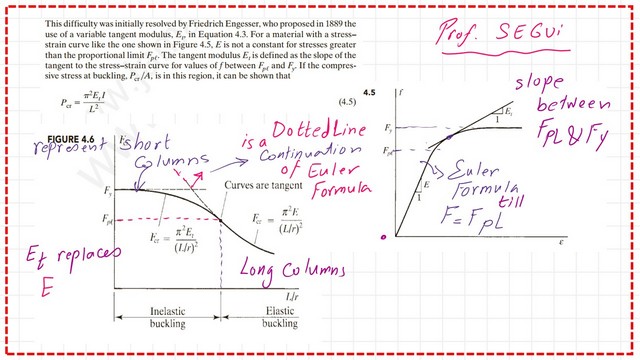 This difficulty was initially resolved by Friedrich Engesser, who proposed in 1889 the
use of a variable tangent modulus, Et, in Equation 4.3. For a material with a stress–
strain curve like the one shown in Figure 4.5, E is not a constant for stresses greater
than the proportional limit Fpl. The tangent modulus Et is defined as the slope of the
tangent to the stress–strain curve for values of f between Fpl and Fy. If the compres-
sive stress at buckling, Pcr/A, is in this region, it can be shown that
Pcr = π²EtI / L² (4.5)
Prof. SEGUi
FIGURE 4.6
represent short
columns
is a Dotted Line
Continuation
of Euler
Formula
Curves are tangent
Fy
Fpl
Fcr = π²Et / (L/r)²
Fcr = π²E / (L/r)²
Et replaces
E
Long Columns
L/r
Inelastic
buckling
Elastic
buckling
4.5
f
Fy
Fpl
Et
1
E
1
ε
slope
between
FPL & Fy
Euler
Formula
till
F = FpL